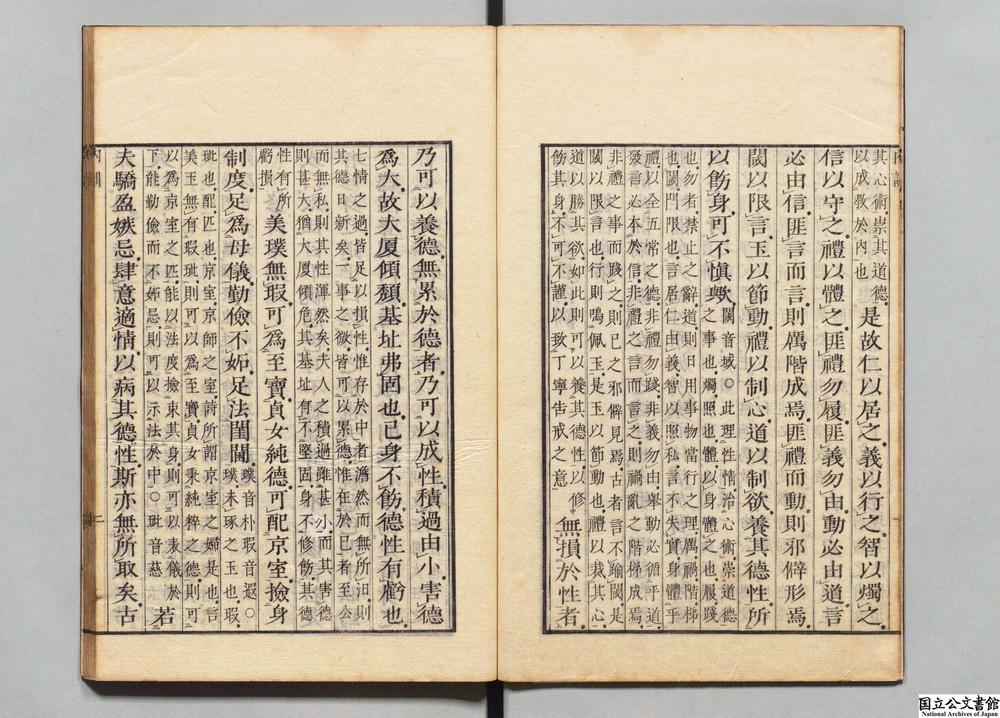 其心術崇其道德
以成教於內也
是故仁以居之義以行之智以燭之
信以守之禮以體之匪禮勿履匪義勿由動必由道言
必由信匪言而言則厲階成焉匪禮而動則邪僻形焉
閾以限言玉以節動禮以制心道以制欲養其德性所
以飭身可不慎歟
閾音域○此理性情治心術崇道德
之事也燭照也體以身體之也履踐
也勿者禁止之辭道則日用事物常行之理厲禍階梯
也閾門限也言居仁由義智以照私言不失實身體乎
禮以全五常之德非禮勿踐非義勿由舉動必循乎道
發言必本於信非禮之言而言之則禍亂之階梯成焉
非禮之事而踐之則已之邪僻見焉古者言不踰閾是
閾以限言也行則鳴佩玉是玉以節動也禮以裁其心
道以勝其欲如此則可以養其德性以修
飭其身不可不謹以致丁寧告戒之意
無損於性者
乃可以養德無累於德者乃可以成性積過由小害德
爲大故大厦傾頹基址弗固也己身不飭德性有虧也
七情之過皆足以損性惟存於中者澹然而無所汩則
其德日新矣一事之欲皆可以累德惟在於己者至公
而無私則其性渾然矣夫人之積過雖甚小而其害德
則甚大猶大厦傾危其基址有不堅固身不修飭其德
性有所
虧損
美璞無瑕可爲至寶貞女純德可配京室撿身
制度足爲母儀勤儉不妬足法閨閫
璞音朴瑕音遐○
璞未琢之玉也瑕
玼也配匹也京室京師之室詩所謂京室之婦是也言
美玉無有瑕玼則可以爲至寶貞女秉純粹之德則可
以爲京室之匹能以法度撿束其身則可以表儀於
下能勤儉而不妬忌則可以示法於中○玼音慈
若
夫驕盈嫉忌肆意適情以病其德性斯亦無所取矣古
国立公文書館
National Archives of Japan